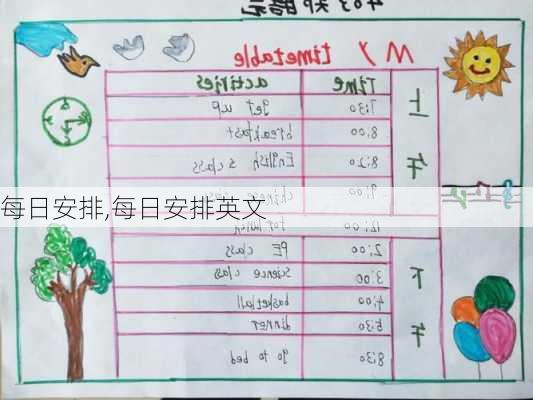 403 郑皓元
My timetable
Time activities
上午
7:30 get up
8:00 breakfast
8:20 English s class
9:00 chinese class
每日安排,每日安排英文
12:00 for lunch
下午
2:00 PE class
3:00 science class
4:00 basketball
5:30 dinner
8:30 go to bed